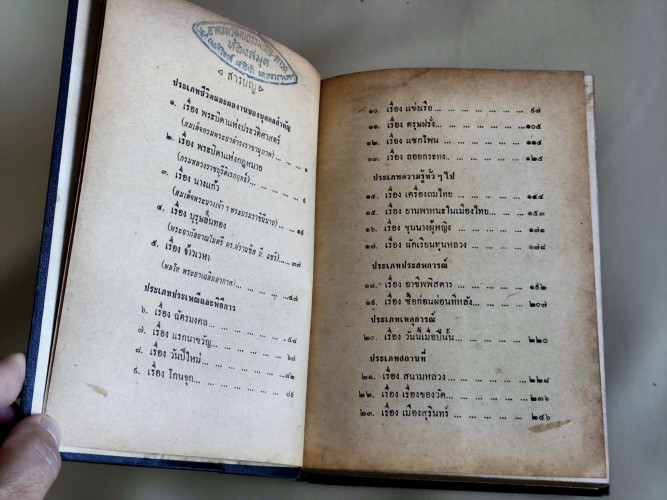 ห้องสมุด
สารบัญ
ประเภทชีวิตและผลงานของบุคคลสำคัญ
๑. เรื่อง พระบิดาแห่งประวัติศาสตร์
(สมเด็จกรมพระยาดำรงราชานุภาพ) ... ... ๑
๒. เรื่อง พระบิดาแห่งกฎหมาย
(กรมหลวงราชบุรีดิเรกฤทธิ์) ... ...
๓. เรื่อง นางแก้ว
(สมเด็จพระนางเจ้า ฯ พระบรมราชินีนาถ) ... ...
๔. เรื่อง บุรุษลิ้นทอง
(พระยากัลยาณไมตรี ดร.ฟรานซิส บี. แซร์) ... ๓๗
๕. เรื่อง จ้าวเวหา
(พลโท พระยาเฉลิมอากาศ) ... ... ... ๔๗
ประเภทประเพณีและพิธีการ
๖. เรื่อง ฉัตรมงคล ... ... ... ... ๕๘
๗. เรื่อง แรกนาขวัญ ... ... ... ... ๖๗
๘. เรื่อง วันปีใหม่ ... ... ... ...
๙. เรื่อง โกนจุก ... ... ... ...
๑๐. เรื่อง แข่งเรือ ... ... ... ... ๙๗
๑๑. เรื่อง ตรุษฝรั่ง ... ... ... ... ๑๐๕
๑๒. เรื่อง แซกโพน ... ... ... ... ๑๑๔
๑๓. เรื่อง ลอยกระทง ... ... ... ... ๑๒๕
ประเภทความรู้ทั่ว ๆ ไป
๑๔. เรื่อง เครื่องถมไทย ... ... ...
๑๕. เรื่อง ยานพาหนะในเมืองไทย ... ... ๑๕๓
๑๖. เรื่อง ขุนนางผู้หญิง ... ... ... ๑๗๑
๑๗. เรื่อง นักเรียนทุนหลวง ... ... ... ๑๗๘
ประเภทประสพการณ์
๑๘. เรื่อง อาชีพพิสดาร ... ... ... ๑๙๒
๑๙. เรื่อง ซื้อก่อนผ่อนทีหลัง ... ... ... ๒๐๗
ประเภทเหตุการณ์
๒๐. เรื่อง วันนี้เมื่อปีนั้น ... ... ... ๒๒๐
ประเภทสถานที่
๒๑. เรื่อง สนามหลวง ... ... ... ... ๒๒๘
๒๒. เรื่อง เรื่องของวัด ... ... ... ... ๒๓๖
๒๓. เรื่อง เมืองสุรินทร์ ... ... ... ... ๒๔๖